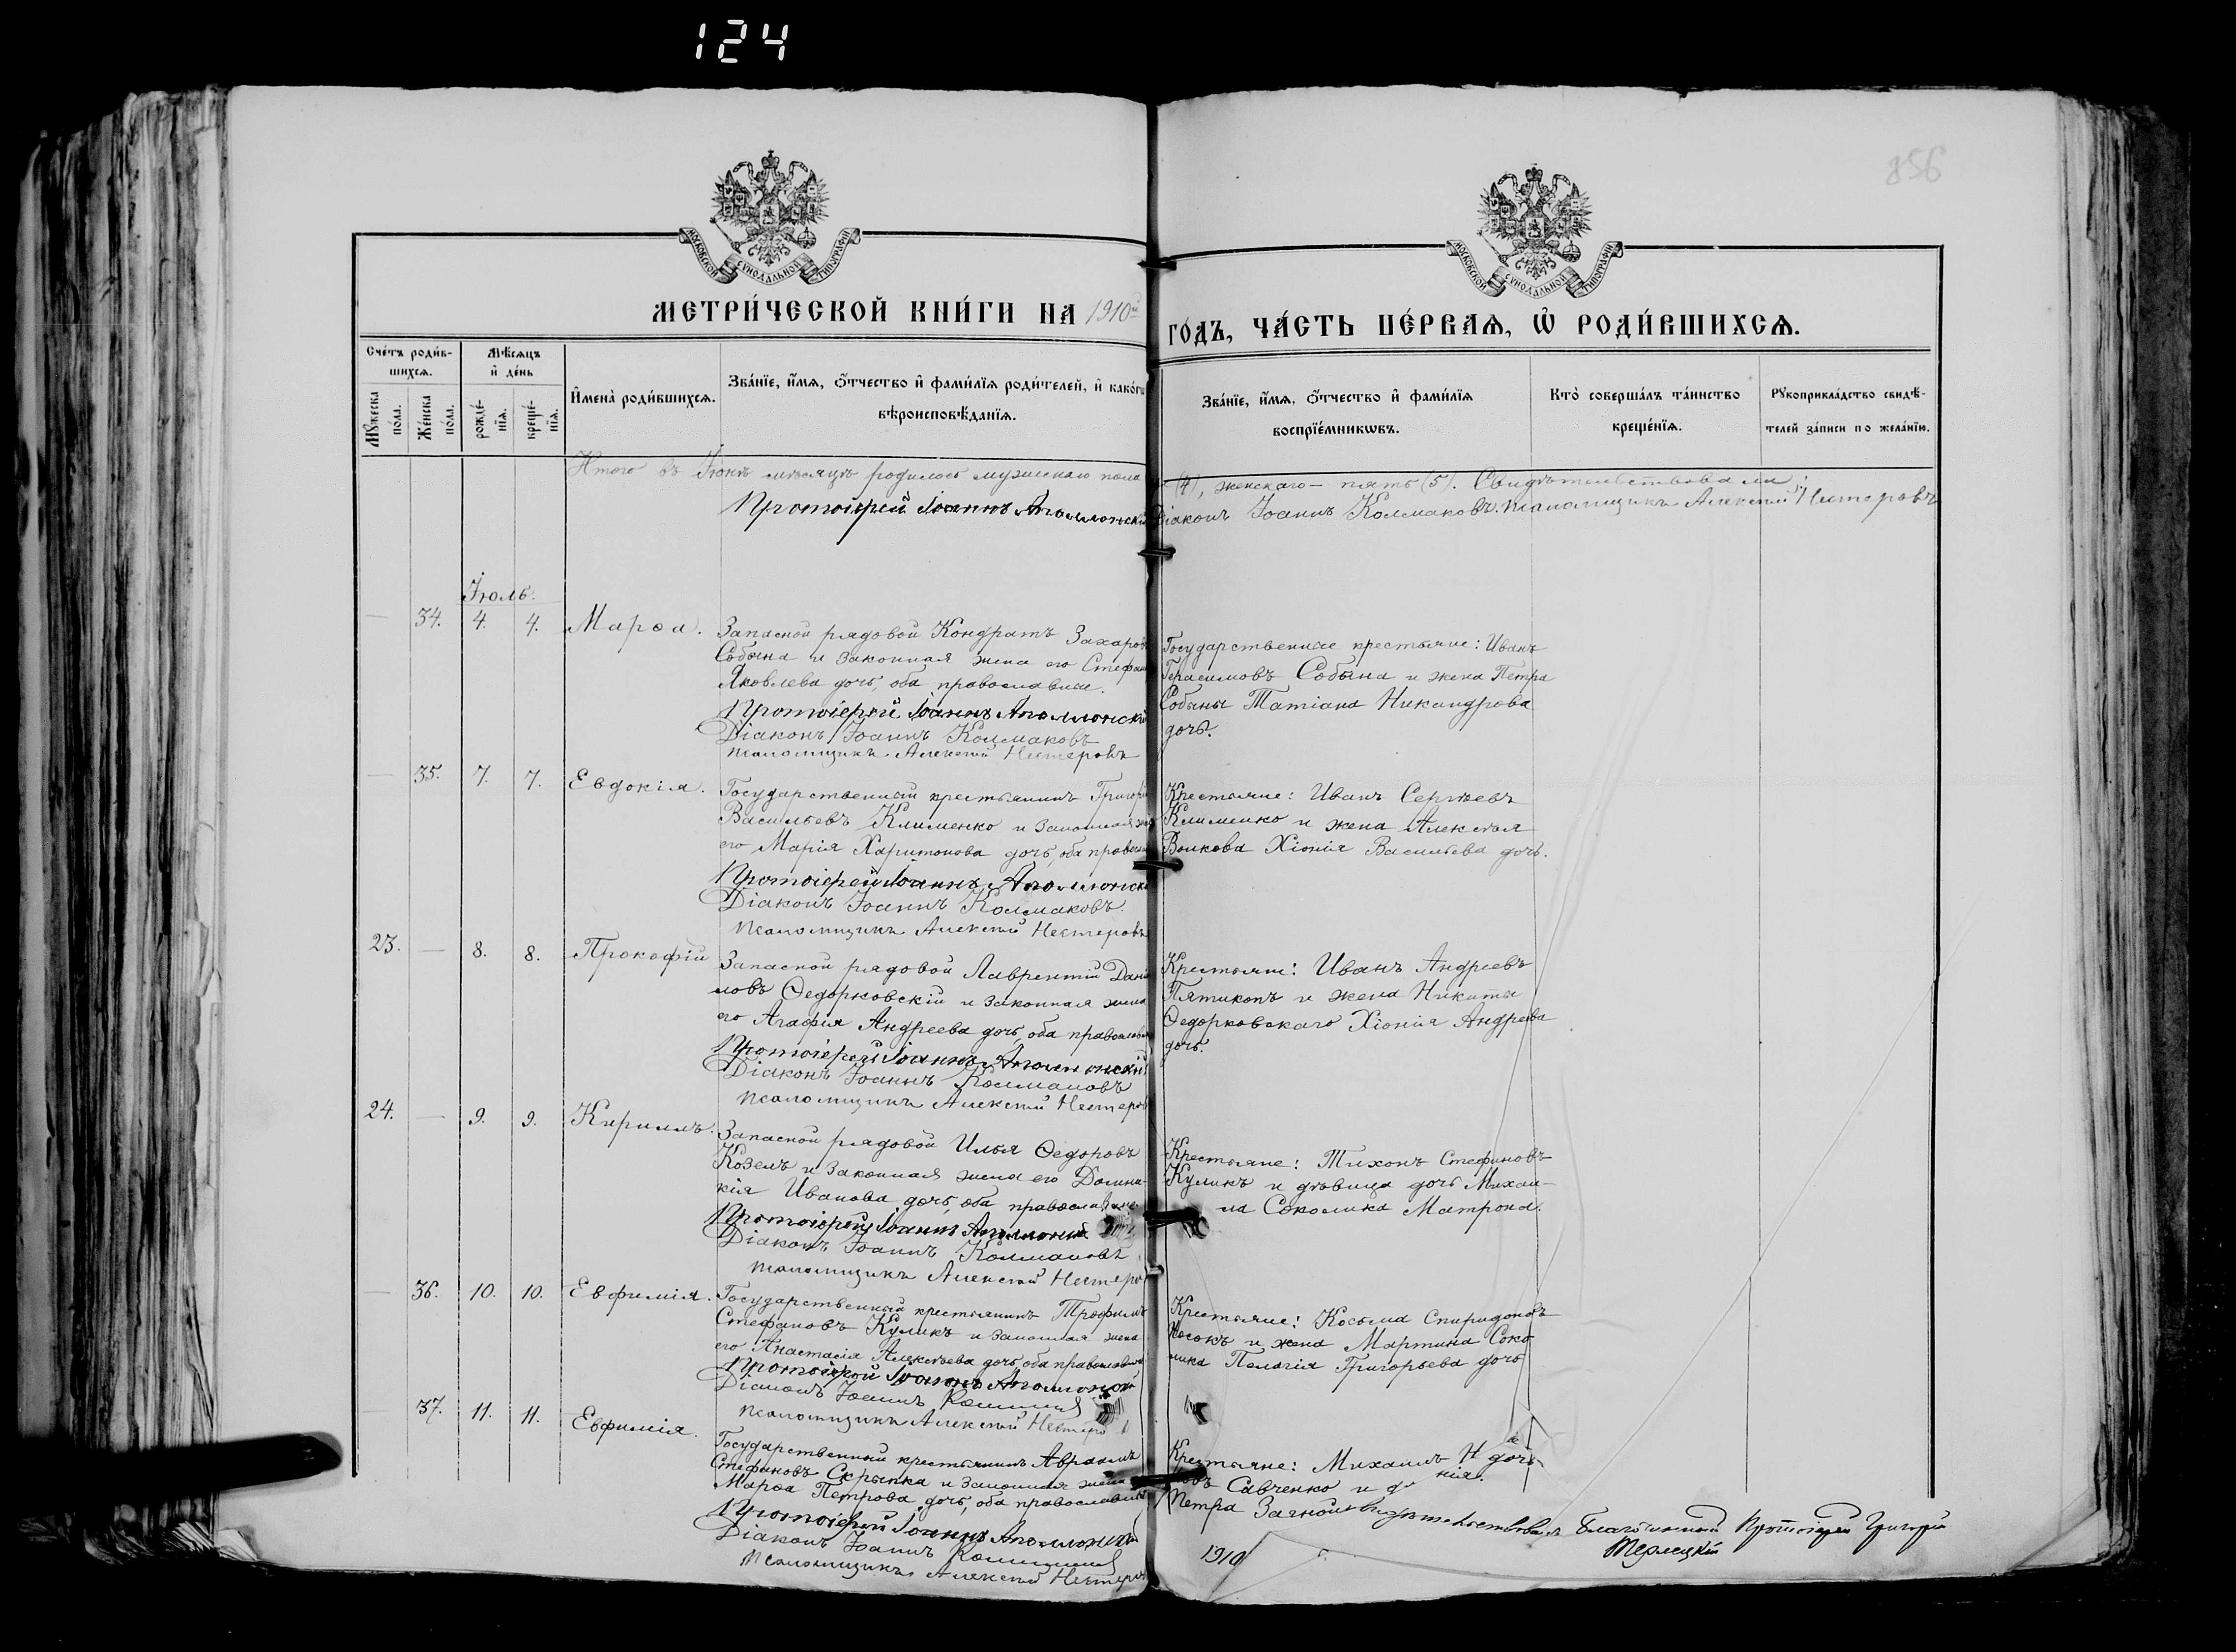 124
856
МОСКОВСКОЙ СУНОДАЛЬНОЙ ТИПОГРАФІИ
МОСКОВСКОЙ СУНОДАЛЬНОЙ ТИПОГРАФІИ
МЕТРИ́ЧЕСКОЙ КНИ́ГИ НА 1910й
ГО́ДЪ, ЧА́СТЬ ПЕ́РВАѦ, Ѡ РОДИ́ВШИХСѦ.
Сче́тъ роди́в-
шихсѧ.
Мꙋ́жеска
по́ла.
Же́нска
по́ла.
Мѣ́сѧцъ
и҆ де́нь
рожде́-
нїѧ.
креще́-
нїѧ.
И҆мена̀ роди́вшихсѧ.
Зва́нїе, и҆́мѧ, ѻ҆́тчество и҆ фами́лїѧ роди́телей, и҆ како́гѡ
вѣроисповѣ́данїѧ.
Зва́нїе, и҆́мѧ, ѻ҆́тчество и҆ фами́лїѧ
воспрїе́мникѡвъ.
Кто̀ соверша́лъ та́инство
креще́нїѧ.
Рꙋкоприкла́дство свидѣ́-
телей за́писи по жела́нїю.
Итого въ Іюнѣ мѣсяцѣ родилось мужескаго пола
(4), женскаго – пять (5). Свидѣтельствовали:
Протоіерей Іоаннъ Аполлонскій
Діаконъ Іоаннъ Колмаковъ. Псаломщикъ Алексѣй Нестеровъ
Іюль.
— 34. 4. 4. Марѳа.
Запасной рядовой Кондратъ Захаровъ
Собына и законная жена его Стефан
Яковлева дочь, оба православные.
Протоіерей Іоаннъ Аполлонскій
Діаконъ Іоаннъ Колмаковъ
Псаломщикъ Алексѣй Нестеровъ
Государственные крестьяне: Иванъ
Герасимовъ Собына и жена Петра
Собыны Татіана Никандрова
дочь.
— 35. 7. 7. Евдокія.
Государственный крестьянинъ Григорій
Васильевъ Клименко и законная жена
его Марія Харитонова дочь, оба правосл
Протоіерей Іоаннъ Аполлонскі
Діаконъ Іоаннъ Колмаковъ.
Псаломщикъ Алексѣй Нестеровъ
Крестьяне: Иванъ Сергѣевъ
Клименко и жена Алексѣя
Волкова Хіонія Васильева дочь.
23. — 8. 8. Прокофій
Запасной рядовой Лаврентій Дани
ловъ Ѳедорковскій и законная жена
его Агафія Андреева дочь, оба православн
Протоіерей Іоаннъ Аполлонскій
Діаконъ Іоаннъ Колмаковъ
Псаломщикъ Алексѣй Нестеров
Крестьяне: Иванъ Андреевъ
Пятикопъ и жена Никиты
Ѳедорковскаго Хіонія Андреева
дочь.
24. — 9. 9. Кириллъ.
Запасной рядовой Илья Ѳедоровъ
Козелъ и законная жена его Домни-
кія Иванова дочь, оба православные
Протоіерей Іоаннъ Аполлонскій
Діаконъ Іоаннъ Колмаковъ
Псаломщикъ Алексѣй Нестеро
Крестьяне: Тихонъ Стефановъ
Куликъ и дѣвица дочь Михаи-
ла Соколика Матрона.
— 36. 10. 10. Евфимія.
Государственный крестьянинъ Трофимъ
Стефановъ Куликъ и законная жена
его Анастасія Алексѣева дочь, оба православн
Протоіерей Іоаннъ Аполлонскій
Діаконъ Іоаннъ Колмаковъ
Псаломщикъ Алексѣй Нестеро
Крестьяне: Косьма Спиридоновъ
Носокъ и жена Мартина Соко
лика Пелагія Григорьева дочь
37. 11. 11. Евфимія.
Государственный крестьянинъ Авраамъ
Стефановъ Скрыпка и законная жена
Марѳа Петрова дочь, оба православные
Протоіерей Іоаннъ Аполлонскій
Діаконъ Іоаннъ Колмаковъ
Псаломщикъ Алексѣй Нестеров
Крестьяне: Михаилъ Н дочь
овъ Савченко и нія.
Петра
свидѣтельствовалъ Благочинный Протоіерей Григорій
1910 г.